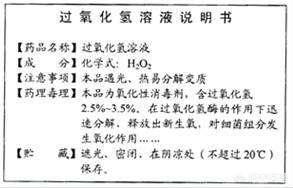 过氧化氢溶液说明书
【药品名称】过氧化氢溶液
【成 分】化学式：H₂O₂
【注意事项】本品遇光、热易分解变质
【药理毒理】本品为氧化性消毒剂，含过氧化氢
2.5%~3.5%。在过氧化氢酶的作用下迅
速分解，释放出新生氧，对细菌组分发
生氧化作用……
【贮 藏】遮光、密闭，在阴凉处（不超过20℃）
保存。